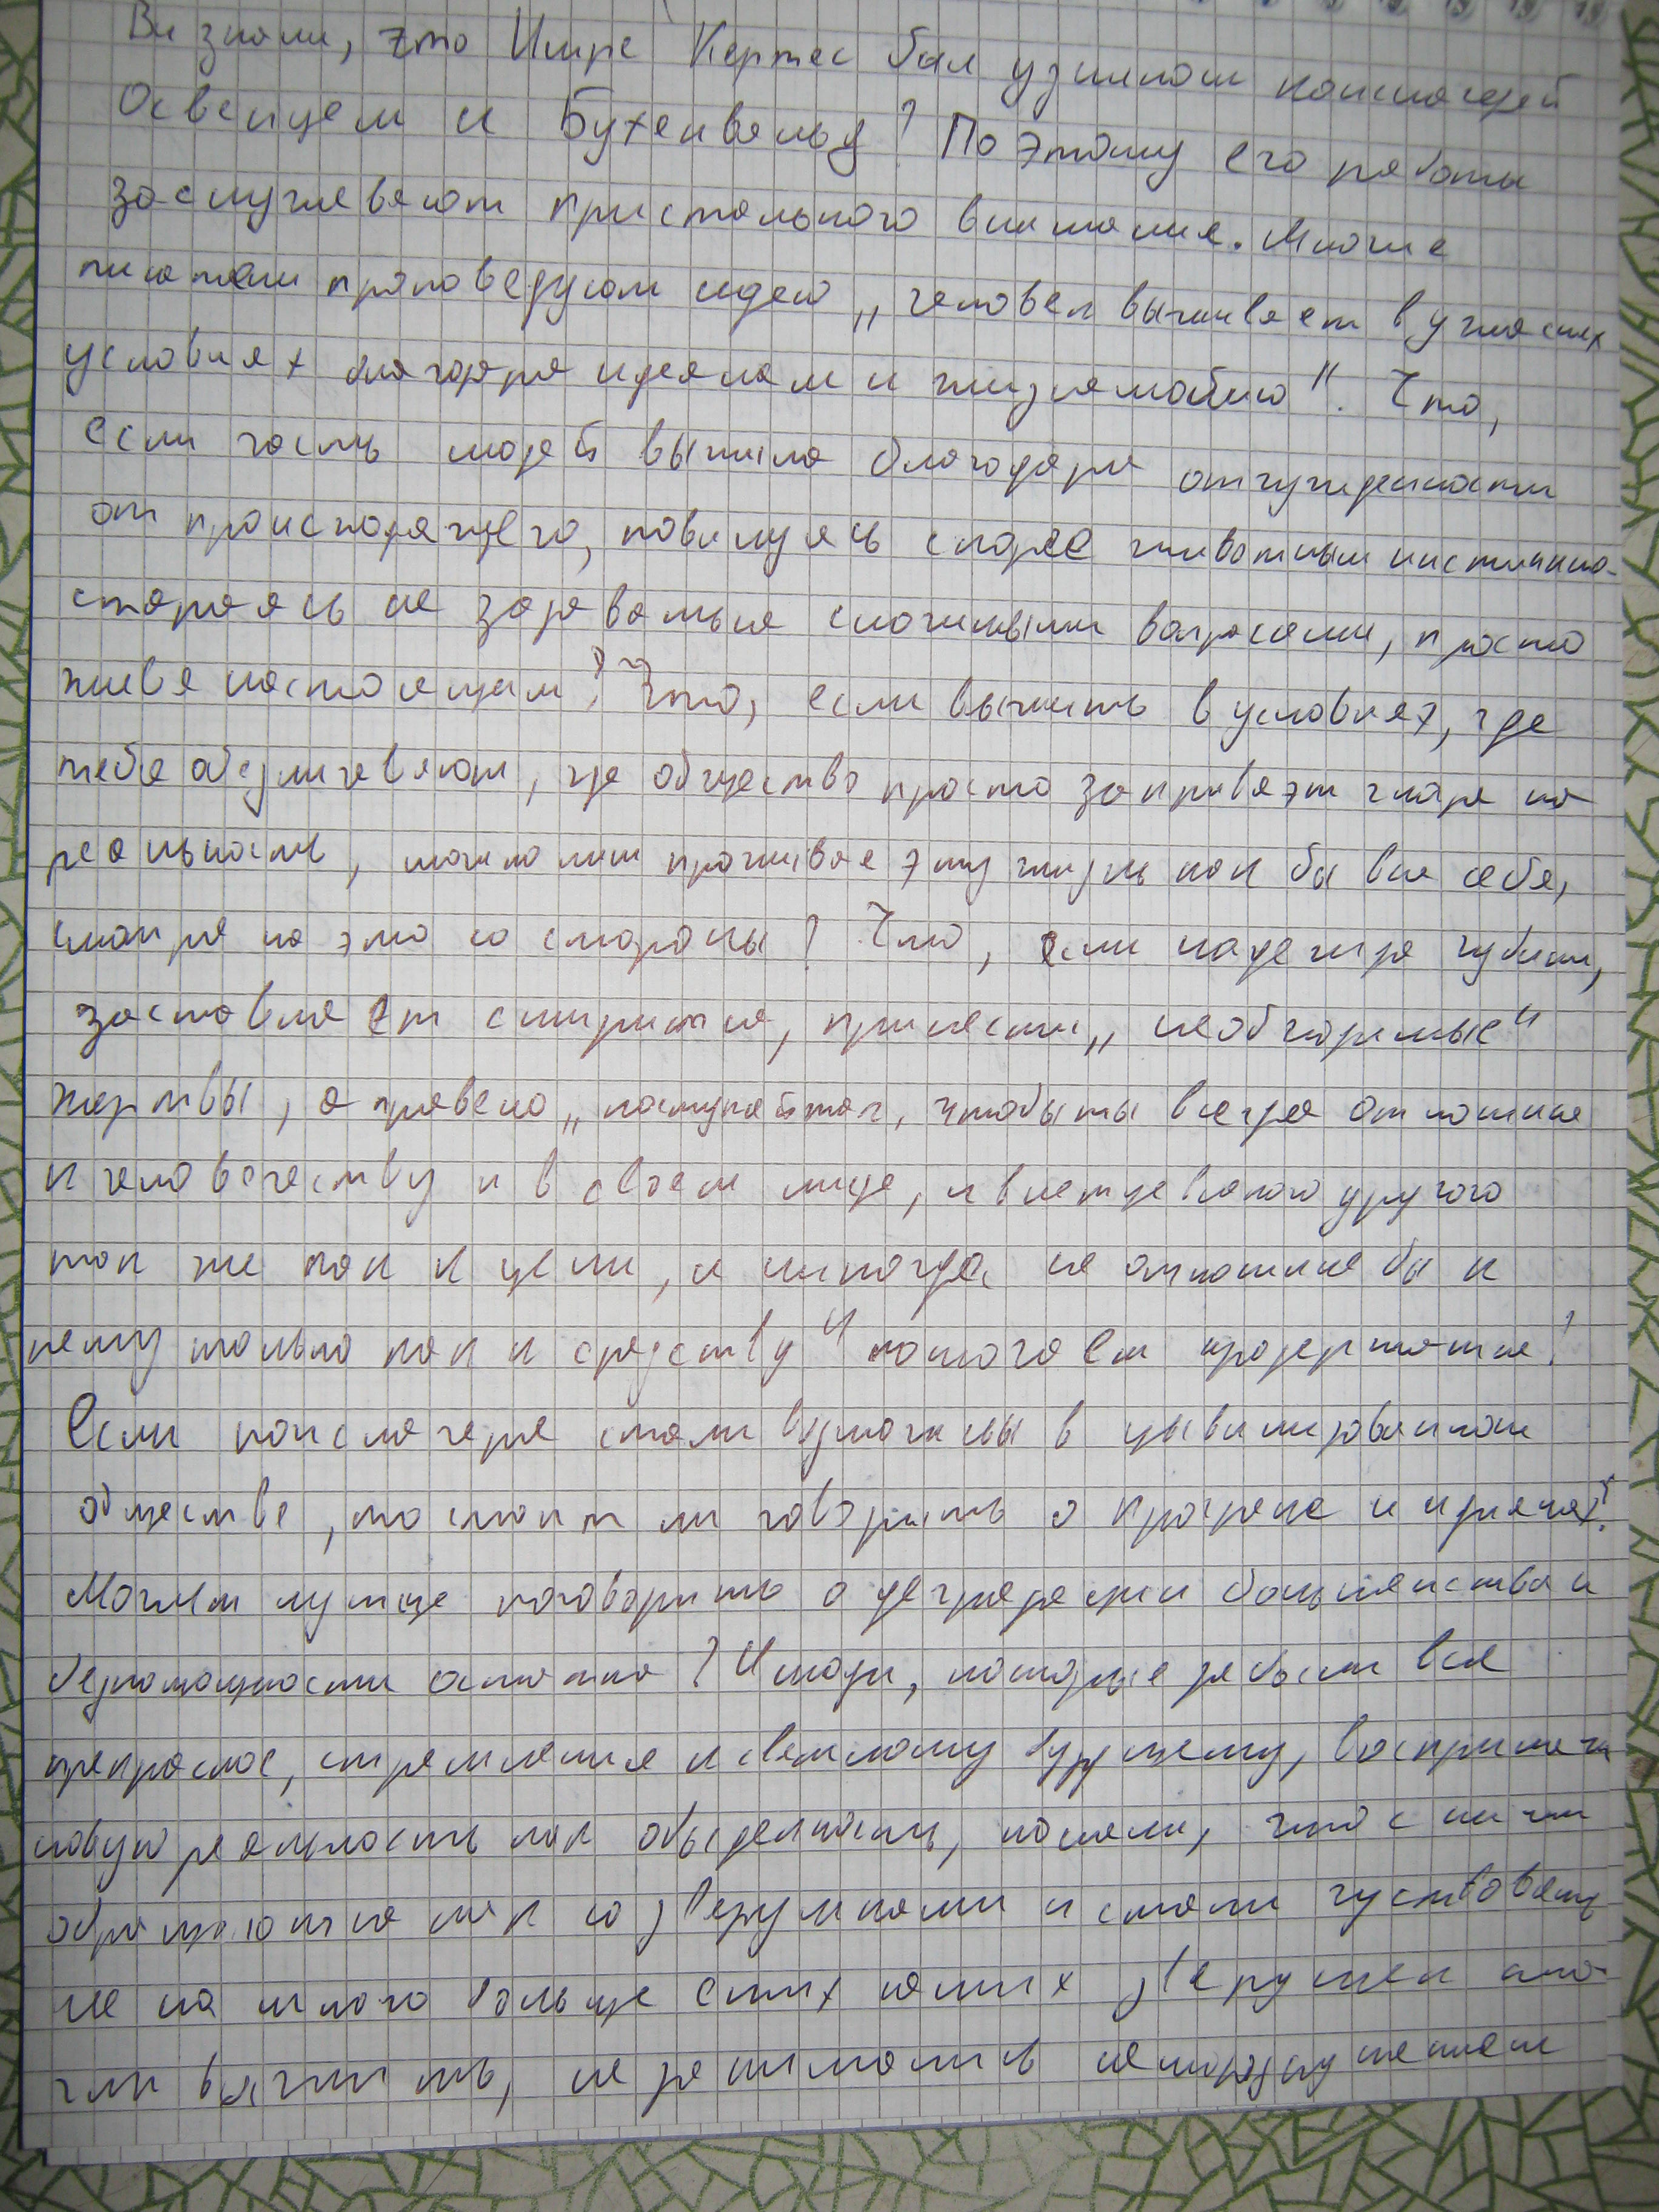 Вы знали, что Имре Кертес был узником концлагерей
Освенцем и Бухенвальд? Поэтому его работы
заслуживают пристального внимания. Многие
писатели проповедуют идею „человек выживает в ужасных
условиях благодаря идеалам и жизнелюбию". Что,
если часть людей выжила благодаря отчужденности
от происходящего, повинуясь скорее животным инстинктам
стараясь не задаваться сложными вопросами, просто
живя настоящим? Что, если выжить в условиях, где
тебя обезличивают, где общество просто закрывает глаза на
реальность, можно лиш проживая эту жизнь как бы вне себя,
смотря на это со стороны? Что, если надежда губит,
заставляет смириться, принести „необходимые"
жертвы, а правело „поступай так, чтобы ты всегда относился
к человечеству и в своем лице, и в лице всякого другого
так же как к цели, и никогда не относился бы к
нему только как к средству" помогает продержаться?
Если концлагеря стали возможны в цывилизованном
обществе, то стоит ли говорить о прогрессе и идеалах?
Может лучше поговорить о деградации большинства и
беспомощности остатка? И люди, которые забыли все
прекрасное, стремления к светлому будущему, восприняли
новую реальность как обыденность, поняли, что с ними
обращаются как со зверушками и стали чуствовать
не на много больше самих зверушек
выжить, не